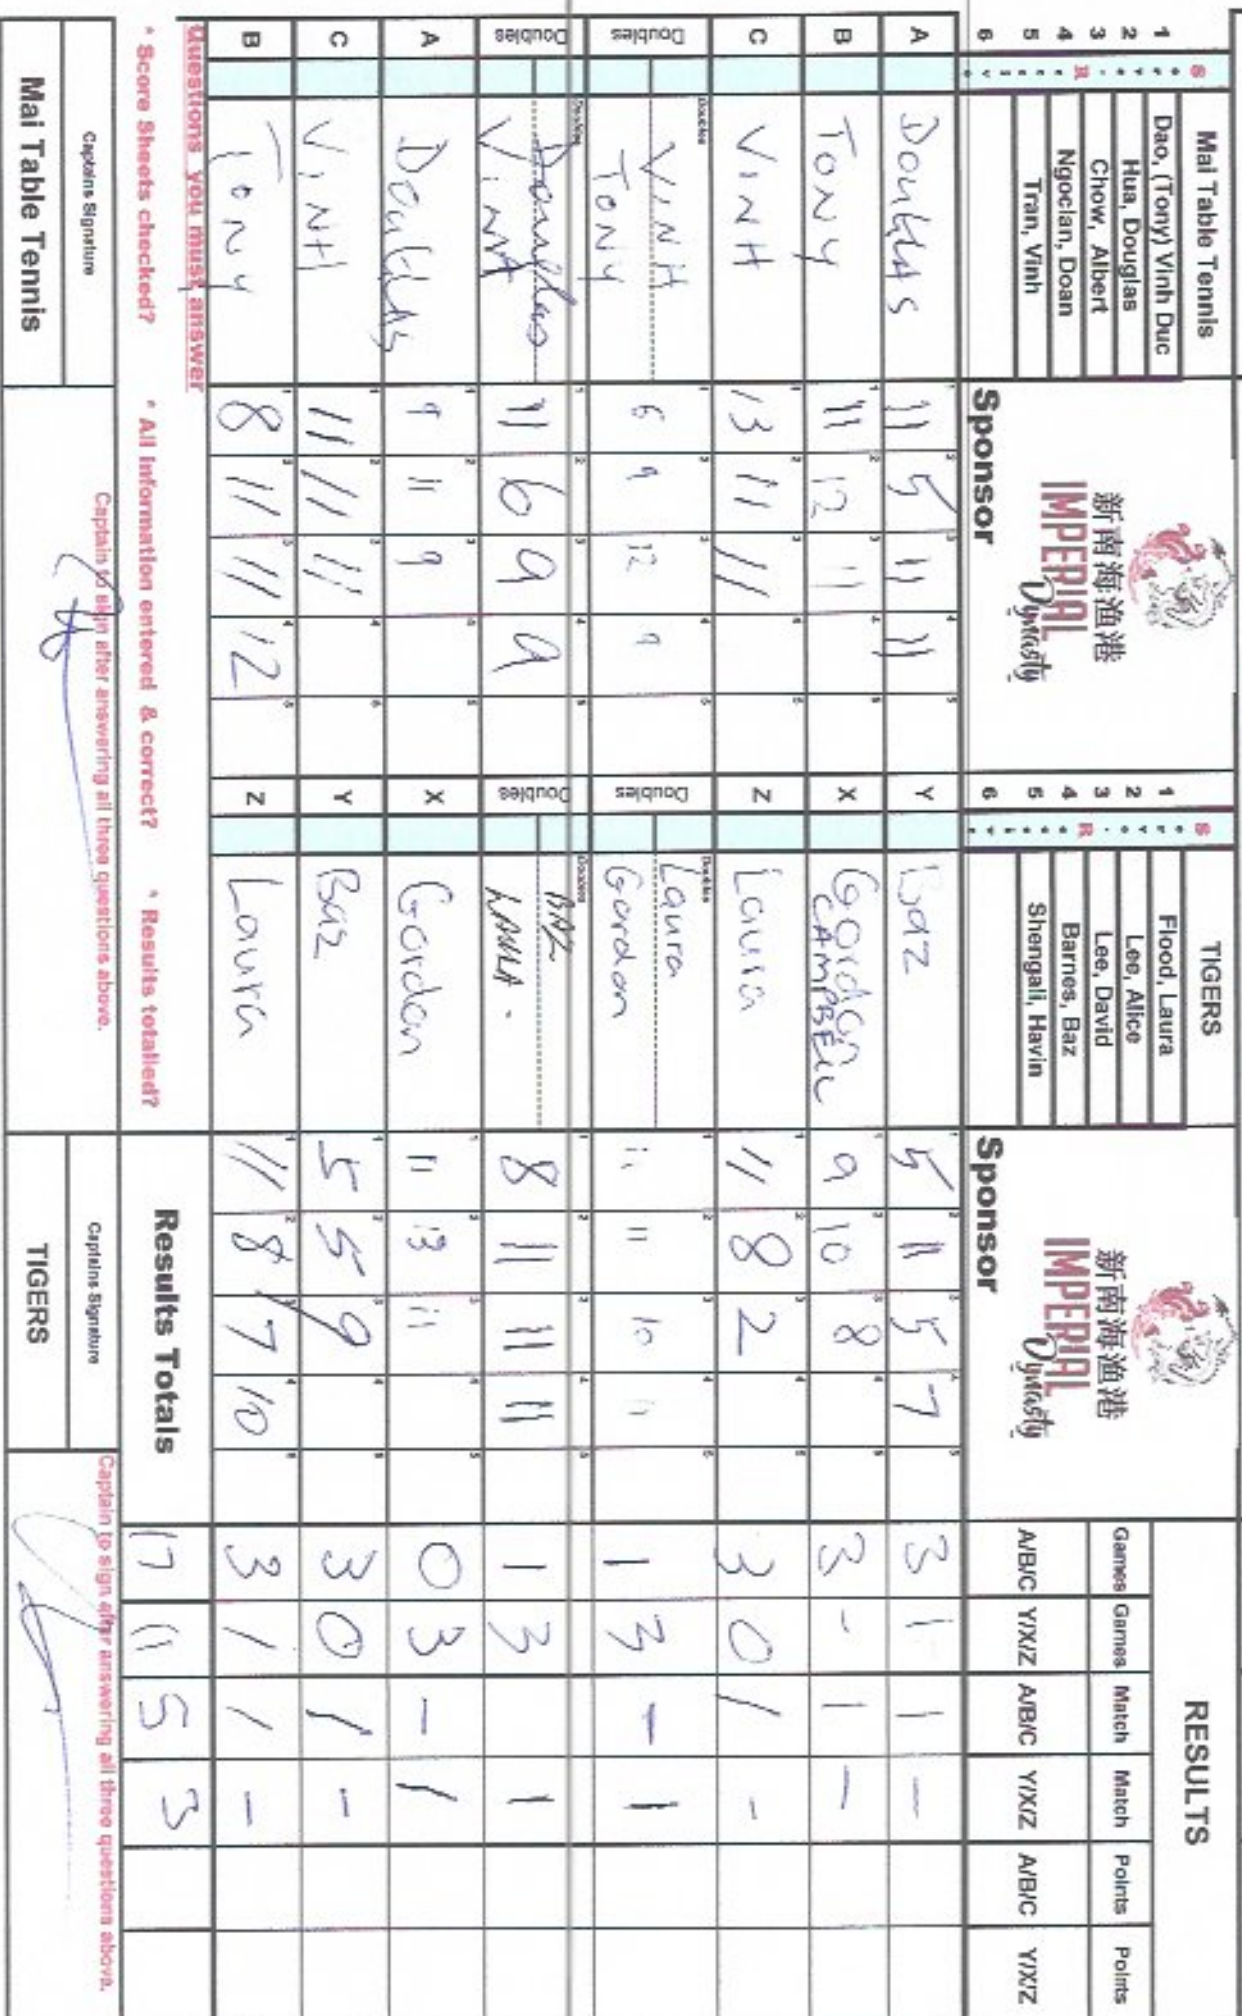 Mai Table Tennis
1 Dao, (Tony) Vinh Duc
2 Hua, Douglas
3 Chow, Albert
4 Ngoclan, Doan
5 Tran, Vinh
6
新南海渔港
IMPERIAL
Dynasty
Sponsor
TIGERS
1 Flood, Laura
2 Lee, Alice
3 Lee, David
4 Barnes, Baz
5 Shengali, Havin
6
新南海渔港
IMPERIAL
Dynasty
Sponsor
RESULTS
Games Games Match Match Points Points
A/B/C Y/X/Z A/B/C Y/X/Z A/B/C Y/X/Z
A DouGLAS 11 5 11 11 Y Baz 5 11 5 7 3 1 1 -
B TONY 11 12 11 X Gordon CAMPBELL 9 10 8 3 - 1 -
C VINH 13 11 11 Z Laura 11 8 2 3 0 1 -
Doubles VINH TONY 6 9 12 9 Doubles Laura Gordon 11 11 10 11 1 3 - 1
Doubles Douglas VINH 11 6 9 9 Doubles BAZ LAURA - 8 11 11 11 1 3 1
A DouGLAS 9 11 9 X Gordon 11 13 11 0 3 - 1
C VINH 11 11 11 Y Baz 5 5 9 3 0 1 -
B TONY 8 11 11 12 Z Laura 11 8 7 10 3 1 1 -
Questions you must answer
* Score Sheets checked? * All information entered & correct? * Results totalled?
Results Totals 17 11 5 3
Captains Signature
Captain to sign after answering all three questions above.
Mai Table Tennis
Captains Signature
Captain to sign after answering all three questions above.
TIGERS